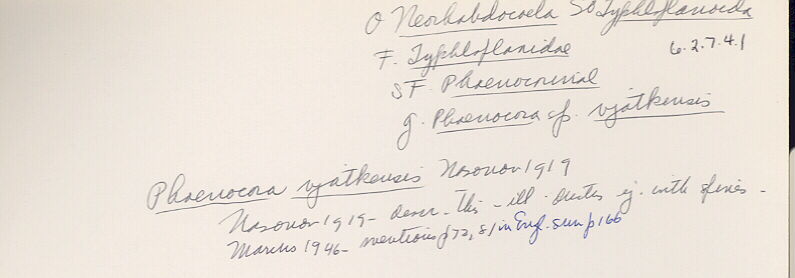 O Neorhabdocoela SO Typhloplanoida
F. Typhloplanidae 6.2.7.4.1
SF. Phaenocorinae
g. Phaenocora sp. vjatkensis
Phaenocora vjatkensis Nasonov 1919
Nasonov 1919 - descr. this - ill. ductus ej. with spines -
Marcus 1946 - mentions p 72, 81 in Engl. sum p 166